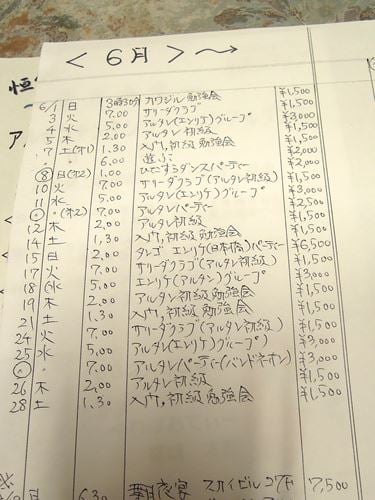 < 6月 > 〜→
6/1 日 3時30分 カワジル勉強会 ¥1,500
3 火 7.00 サリーダクラブ ¥1,500
4 水 5.00 アルタン(エンリケ)グループ ¥3,000
5 木 2.00 アルタン初級 ¥1,500
7 土(オ1) 1.30 入門,初級勉強会 ¥1,500
〃 6.00 遊ぶ ¥2,000
⑧ 日(オ2) 1.00 ひたすらダンスパーティー ¥2,000
10 火 7.00 サリーダクラブ(アルタン初級) ¥1,500
11 水 5.00 アルタン(エンリケ)グループ ¥3,000
〃(オ2) 7.00 アルタンパーティー ¥2,500
12 木 2.00 アルタン初級 ¥1,500
14 土 1.30 入門,初級勉強会 ¥1,500
15 日 2.00 タンゴ エンリケ(日本橋)パーティー ¥6,500
17 火 7.00 サリーダクラブ(アルタン初級) ¥1,500
18 水 5.00 エンリケ(アルタン)グループ ¥3,000
19 木 2.00 アルタン初級勉強会 ¥1,500
21 土 1.30 入門,初級勉強会 ¥1,500
24 火 7.00 サリーダクラブ(アルタン初級) ¥1,500
25 水 5.00 アルタン(エンリケ)グループ ¥3,000
〃 7.00 アルタンパーティー(バンドネオン) ¥3,000
26 木 2.00 アルタン初級 ¥1,500
28 土 1.30 入門,初級勉強会 ¥1,500
月 6.30 夜宴 スカイビル27F 7,500